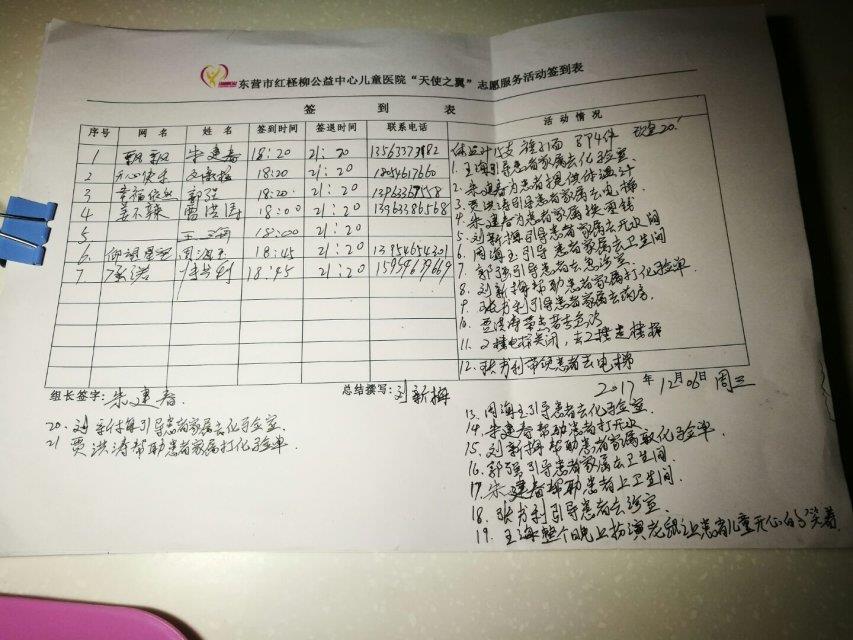 东营市红柽柳公益中心儿童医院“天使之翼”志愿服务活动签到表
签到表 活动情况
序号 网名 姓名 签到时间 签退时间 联系电话
1 飘飘 朱建春 18:20 21:20
2 开心快乐 18:20 21:20
3 幸福使者 郭强 18:20 21:20
4 姜不辣 贾洪涛 18:00 21:20 13963386568
5 王海 18:00 21:20
6 仰望星空 周海玉 18:45 21:20 13954654301
7 承诺 18:45 21:20
体温计15支 894件
1. 王海引导患者家属去化验室
2. 朱建春为患者提供体温计
3. 贾洪涛引导患者家属去电梯
4. 朱建春为患者家属换零钱
5. 刘新梅引导患者家属去卫生间
6. 周海玉引导患者家属去卫生间
7. 郭强引导患者去急诊室
8. 刘新梅帮助患者家属打化验单
9. 引导患者家属去病房
10. 贾洪涛带患者去
11. 2楼电梯关闭,去2楼走楼梯
12. 带领患者去电梯
组长签字:朱建春 总结撰写:刘新梅 2017年12月06日 周三
13. 周海玉引导患者去化验室.
14. 朱建春帮助患者打开水
15. 刘新梅帮助患者家属取化验单.
16. 郭强引导患者家属去卫生间.
17. 朱建春帮助患者上卫生间.
18. 引导患者去诊室.
19. 王海整个晚上扮演龙猫让患者儿童开心的笑着.
20. 刘新梅引导患者家属去化验室.
21 贾洪涛帮助患者家属打化验单